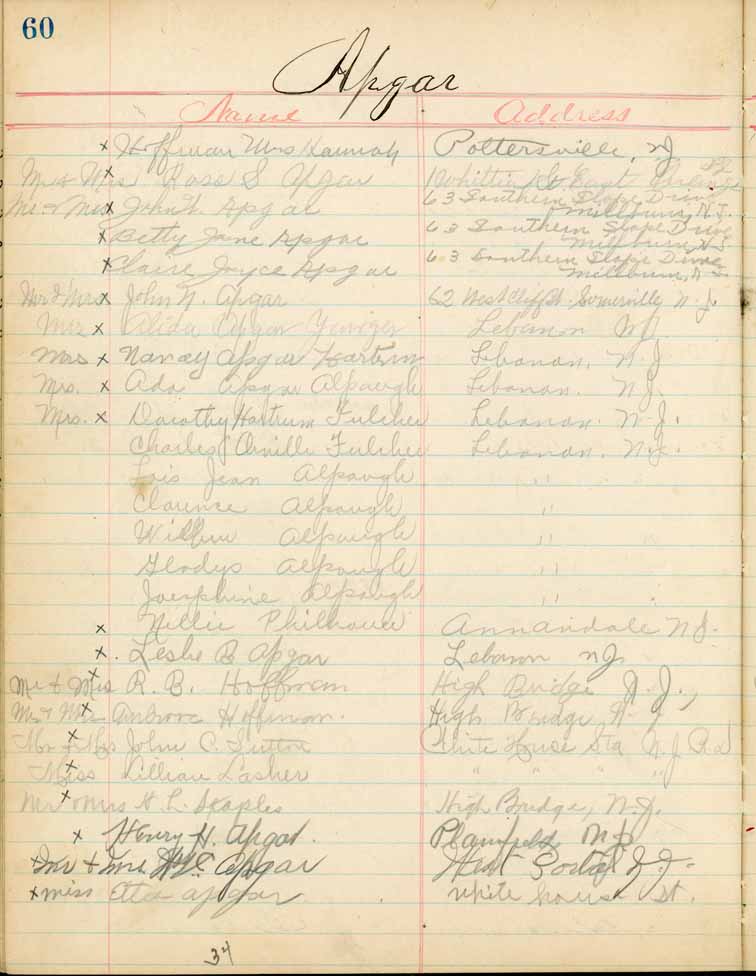 60
Apgar
Name Address
x Hoffman Mrs Hannah Pottersville, NJ
Mr & Mrs x Ross S Apgar 1 Whittier St East Orange
Mr. & Mrs x John W. Apgar 63 Southern Slope Drive Millburn, N.J.
x Betty Jane Apgar 63 Southern Slope Drive Millburn N.J.
x Claire Joyce Apgar 63 Southern Slope Drive Millburn, N.J.
Mr & Mrs x John N. Apgar 62 West Cliff St. Somerville N.J.
Mrs x Alida Apgar Lebanon NJ
Mrs x Nancy Apgar Hartrum Lebanon, N.J.
Mrs. x Ada Apgar Alpaugh Lebanon. N.J.
Mrs. x Dorothy Hartrum Fulcher Lebanon. N.J.
Charles Orville Fulcher Lebanon, N.J.
Lois Jean Alpaugh ,,
Clarence Alpaugh ,,
Wilbur Alpaugh ,,
Gladys Alpaugh ,,
Josephine Alpaugh ,,
x Nellie Philhower Annandale N.J.
x. Leslie B Apgar Lebanon NJ
Mr & Mrs x R. B. Hoffman High Bridge N.J.,
Mr & Mrs x Ambrose Hoffman. High Bridge, N.J
Mr & Mrs x John C. Sutton White House Sta N.J.
Miss x Lillian Lasher " " "
Mr x Mrs H. L. Staples High Bridge, N.J.
x Henry H. Apgar. Plainfield NJ
x Mr & Mrs Apgar West Portal N.J.
x miss Etta apgar white house st.
34